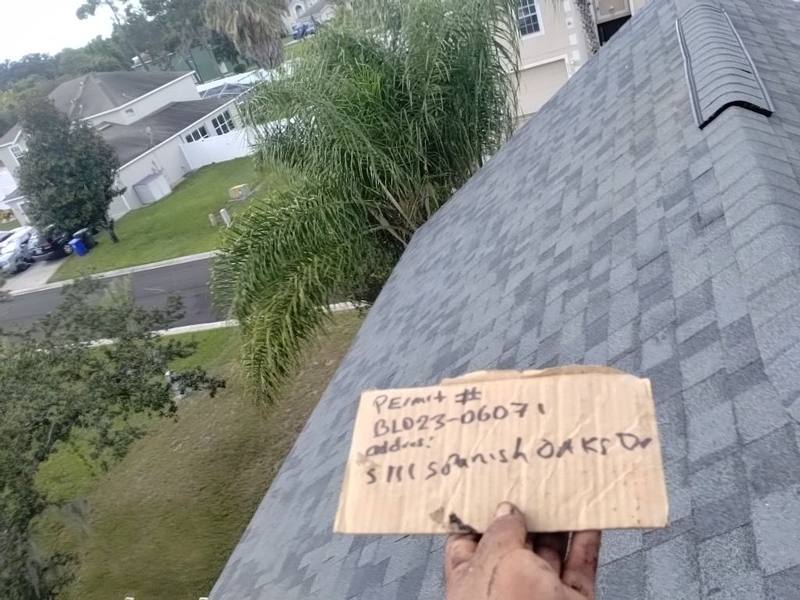 PErmit #
BLD23-06071
addres:
5111 Spanish OAKS Dr